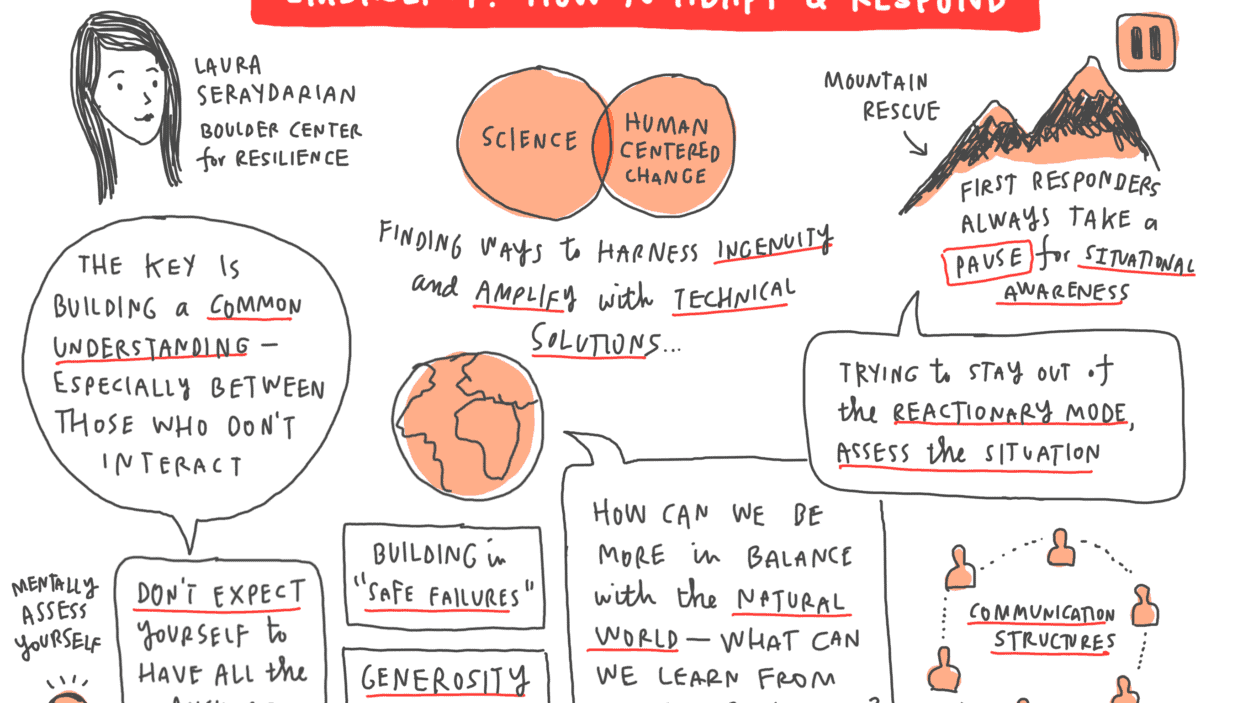 HOW to ADAPT & RESPOND
LAURA
SERAYDARIAN
BOULDER CENTER
for RESILIENCE
SCIENCE
HUMAN
CENTERED
CHANGE
MOUNTAIN
RESCUE
FIRST RESPONDERS
ALWAYS TAKE a
PAUSE for SITUATIONAL
AWARENESS
FINDING WAYS to HARNESS INGENUITY
and AMPLIFY with TECHNICAL
SOLUTIONS...
THE KEY IS
BUILDING a COMMON
UNDERSTANDING —
ESPECIALLY BETWEEN
THOSE WHO DON'T
INTERACT
TRYING to STAY OUT of
the REACTIONARY MODE,
ASSESS the SITUATION
MENTALLY
ASSESS
YOURSELF
DON'T EXPECT
YOURSELF to
HAVE ALL the
BUILDING in
"SAFE FAILURES"
GENEROSITY
HOW CAN WE BE
MORE in BALANCE
with the NATURAL
WORLD — WHAT CAN
WE LEARN FROM
?
COMMUNICATION
STRUCTURES